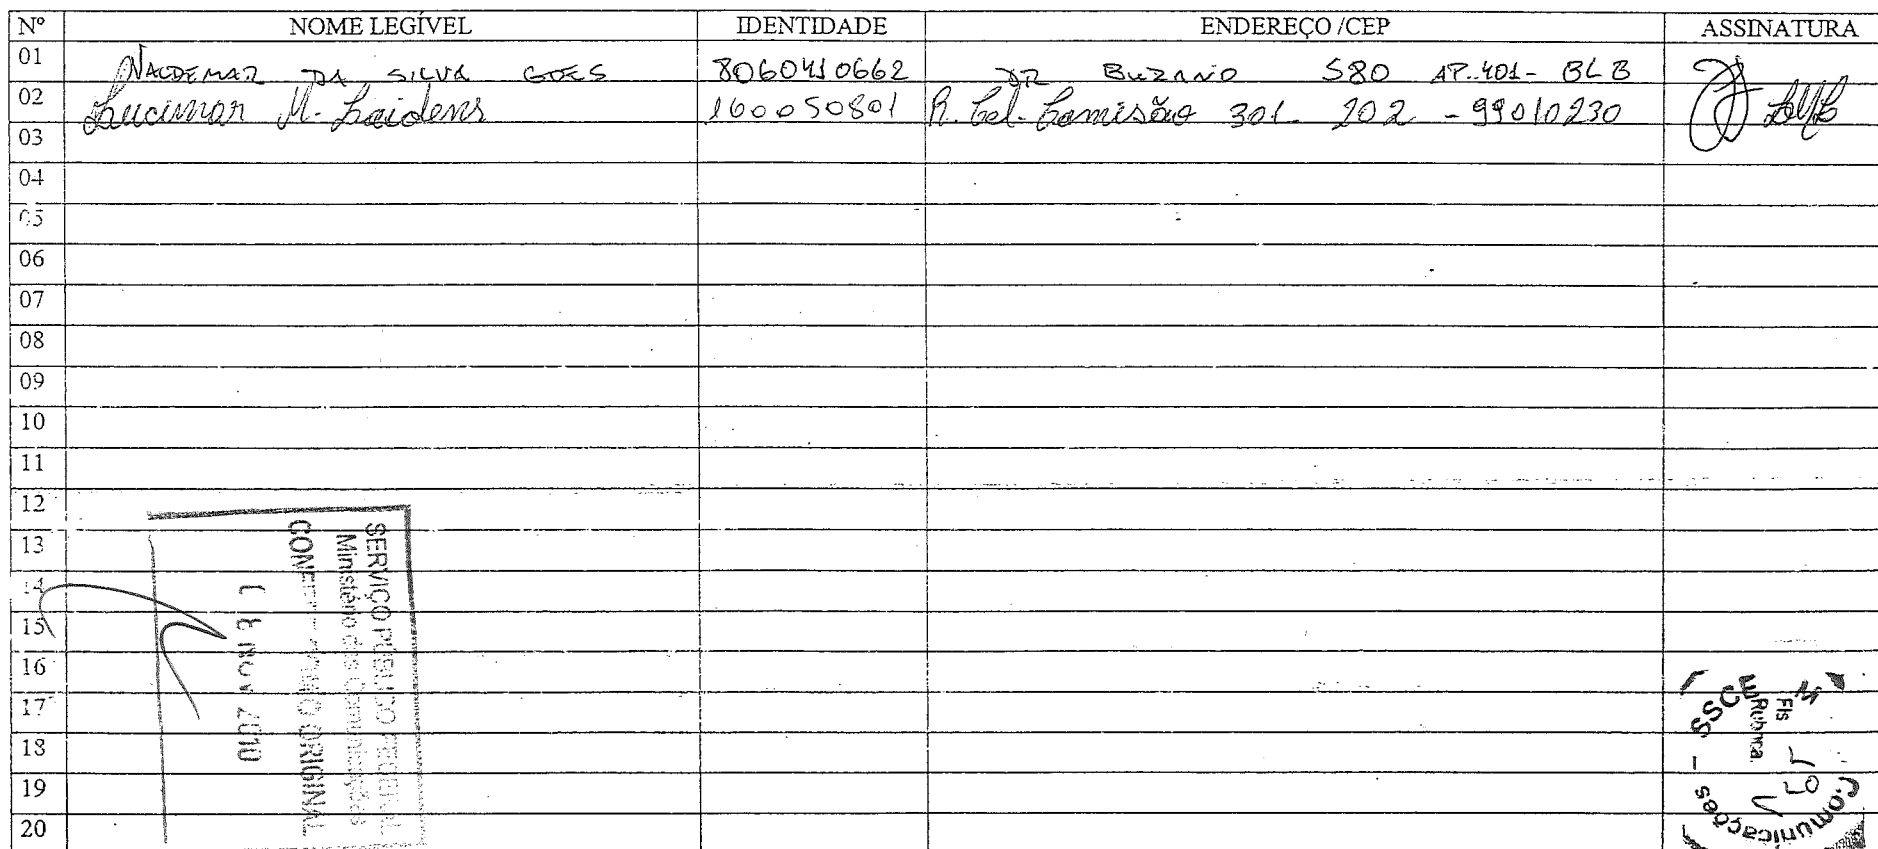 Nº NOME LEGÍVEL IDENTIDADE ENDEREÇO /CEP ASSINATURA
01 VALDEMAR DA SILVA GOES 8060410662 DR BUZANO 580 AP.401- BLB
02 Lucimar M. Laidens 160050801 R. Cel. Camisão 301 202 - 99010230
03
04
05
06
07
08
09
10
11
12
13
14
15
16
17
18
19
20
SERVIÇO PÚBLICO FEDERAL
Ministério das Comunicações
CONFERE COM O ORIGINAL
NOV 2010
Comunicações - SSCE
Fls
Rubrica